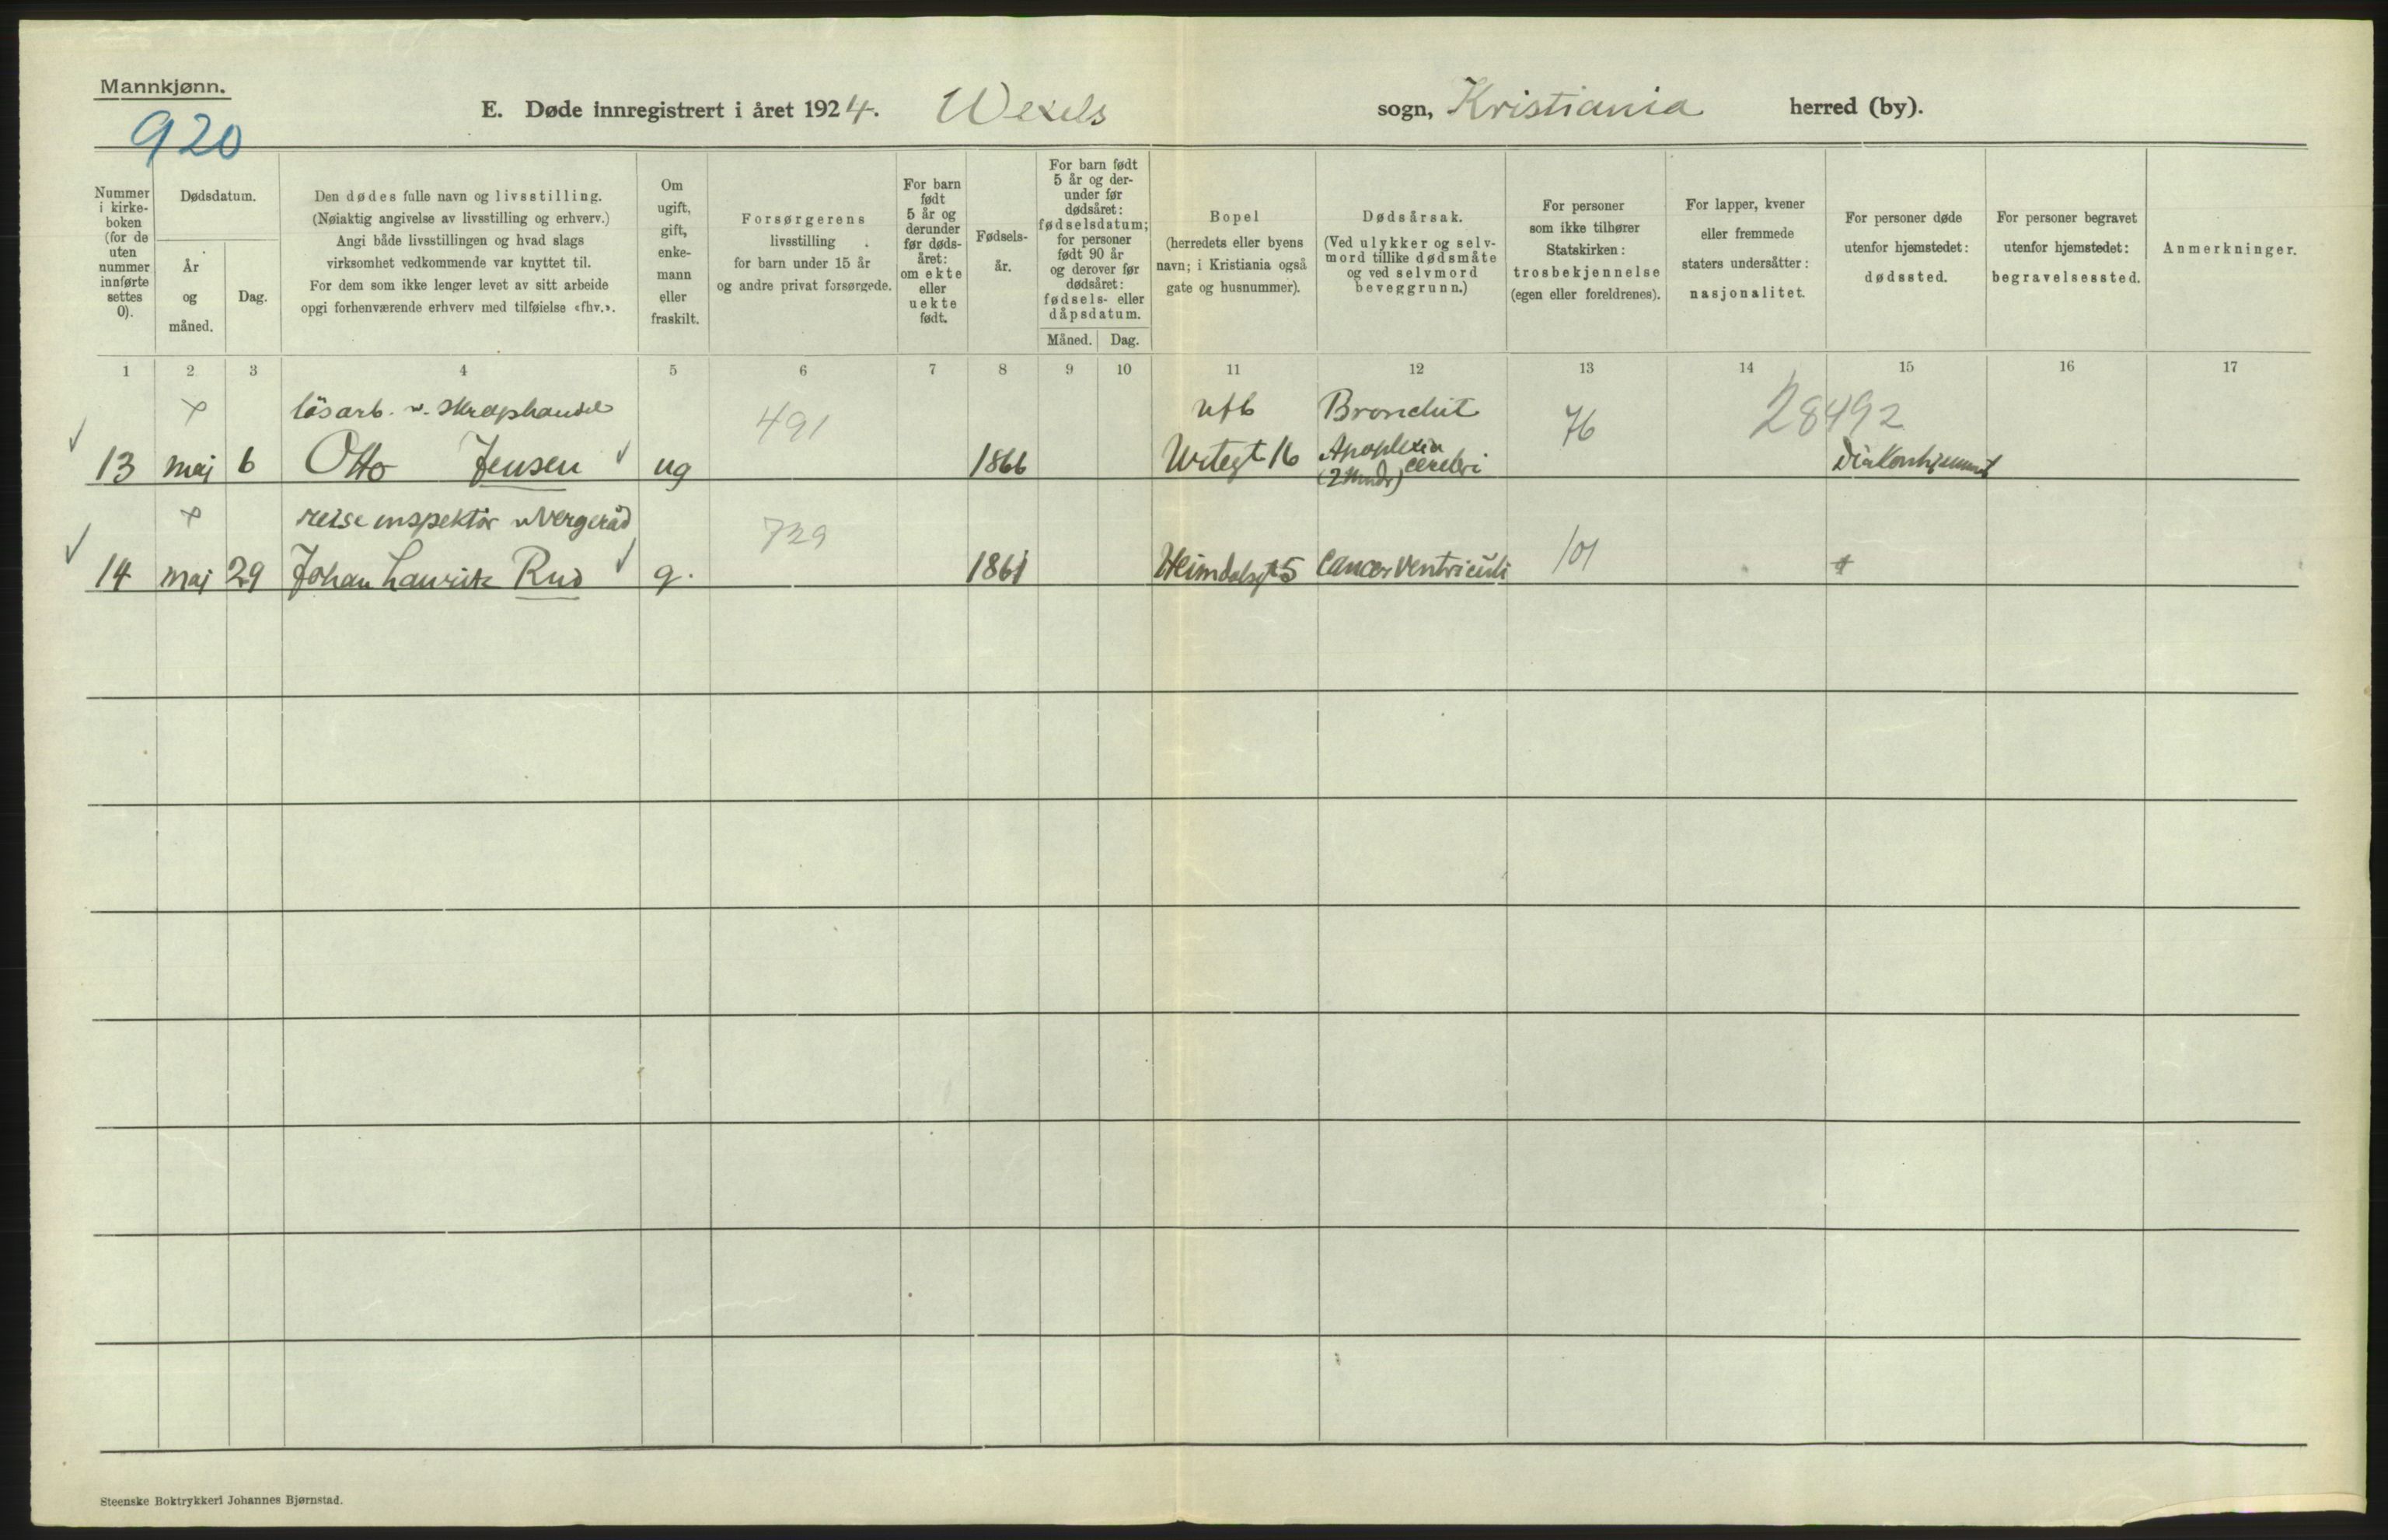 Mannkjønn.
920
E. Døde innregistrert i året 1924. Wexels sogn, Kristiania herred (by).
Nummer i kirke- boken (for de uten nummer innførte settes 0).
Dødsdatum.
År og måned.
Dag.
Den dødes fulle navn og livsstilling.
(Nøiaktig angivelse av livsstilling og erhverv.)
Angi både livsstillingen og hvad slags
virksomhet vedkommende var knyttet til.
For dem som ikke lenger levet av sitt arbeide
opgi forhenværende erhverv med tilføielse «fhv.».
Om ugift, gift, enke- mann eller fraskilt.
Forsørgerens
livsstilling
for barn under 15 år
og andre privat forsørgede.
For barn født 5 år og derunder før døds- året: om ekte eller uekte født.
Fødsels- år.
For barn født 5 år og der- under før dødsåret: fødselsdatum; for personer født 90 år og derover før dødsåret: fødsels- eller dåpsdatum.
Måned. Dag.
Bopel
(herredets eller byens
navn; i Kristiania også
gate og husnummer).
Dødsårsak.
(Ved ulykker og selv-
mord tillike dødsmåte
og ved selvmord
beveggrunn.)
For personer
som ikke tilhører
Statskirken:
trosbekjennelse
(egen eller foreldrenes).
For lapper, kvener
eller fremmede
staters undersåtter:
nasjonalitet.
For personer døde
utenfor hjemstedet:
dødssted.
For personer begravet
utenfor hjemstedet:
begravelsessted.
Anmerkninger.
1 2 3 4 5 6 7 8 9 10 11 12 13 14 15 16 17
løsarb. v. skraphandel 491 ufb Bronchit 76 28492
13 maj 6 Otto Jensen ug 1866 Urtegt 16 Apoplexia cerebri (2 mndr) Diakonhjemmet
reiseinspektør v Vergeråd 729
14 maj 29 Johan Lauritz Rud g. 1861 Heimdalsgt 5 Cancer ventriculi 101
Steenske Boktrykkeri Johannes Bjørnstad.